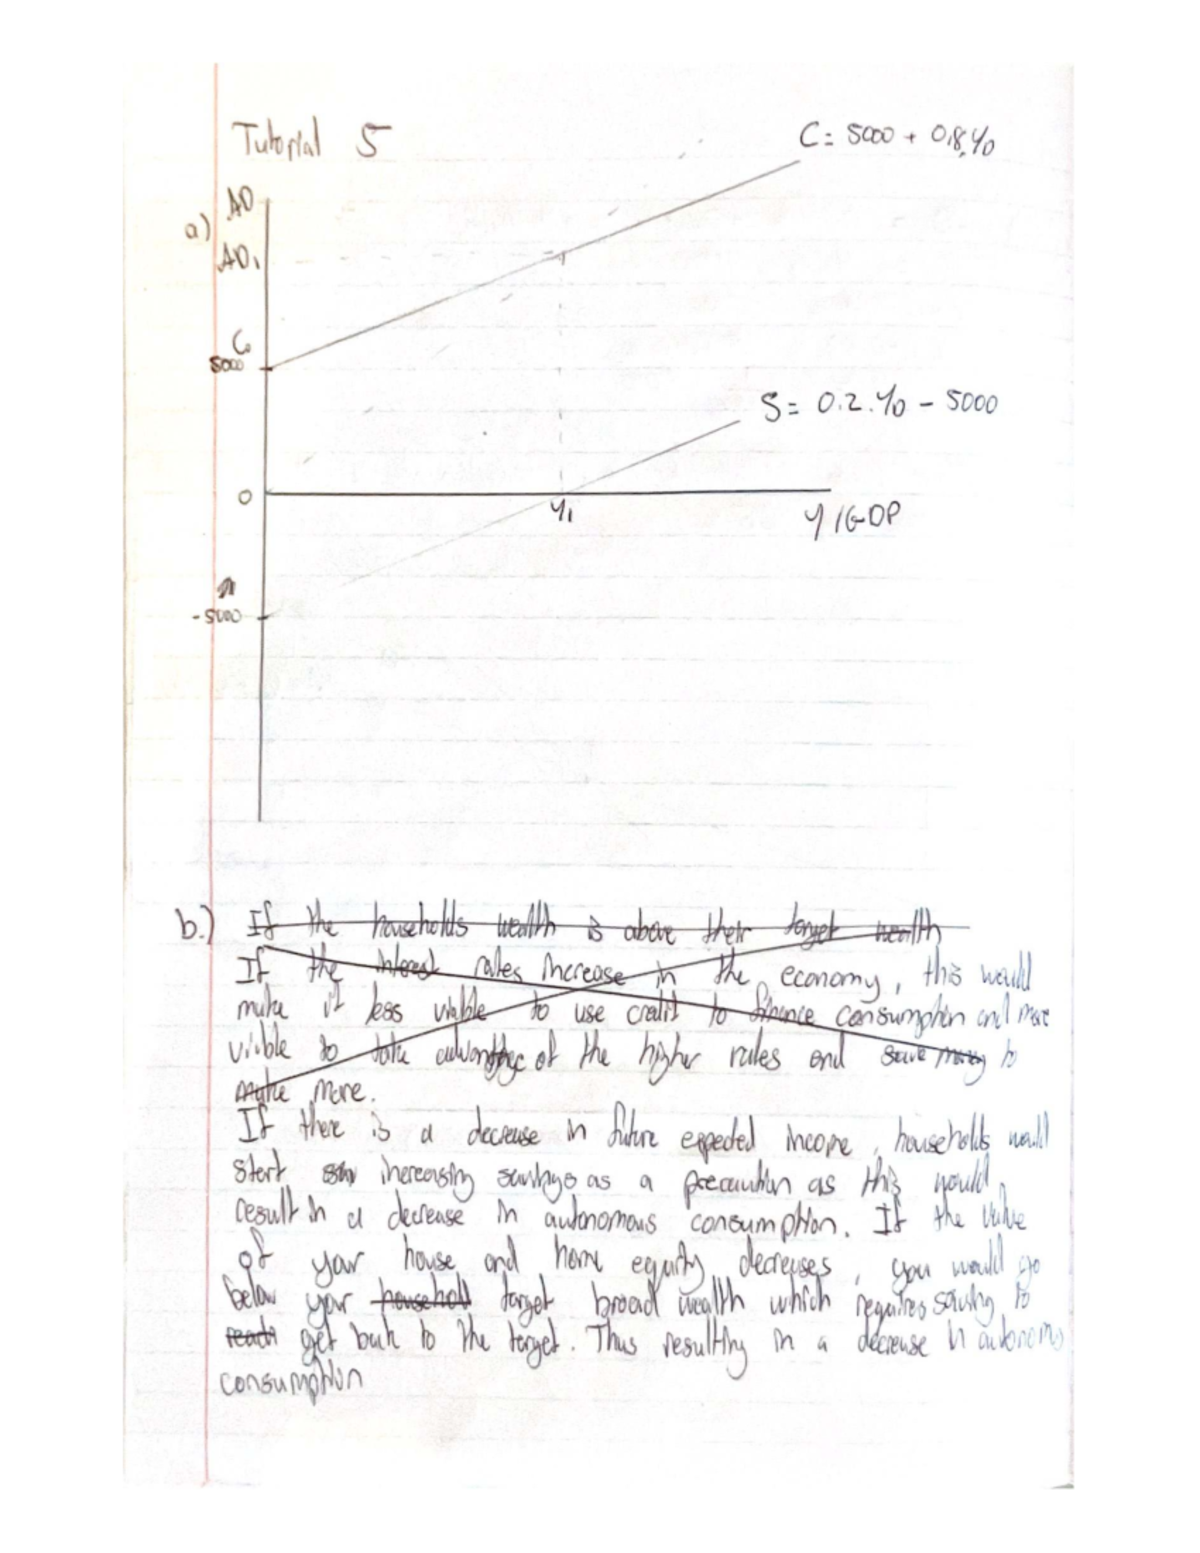 Tutorial 5
C = 5000 + 0,8.Y0
AD
a)
AD1
C0
5000
S = 0.2.Y0 - 5000
0
Y1
Y/GDP
-5000
b.) If the households wealth is above their target wealth
If the interest rates increase in the economy, this would
make it less viable to use credit to finance consumption and more
viable to take advantage of the higher rates and save money to
make more.
If there is a decrease in future expected income, households would
start increasing savings as a precaution as this would
result in a decrease in autonomous consumption. If the value
of your house and home equity decreases, you would go
below your household target broad wealth which requires saving to
reach get back to the target. Thus resulting in a decrease in autonomo
consumption